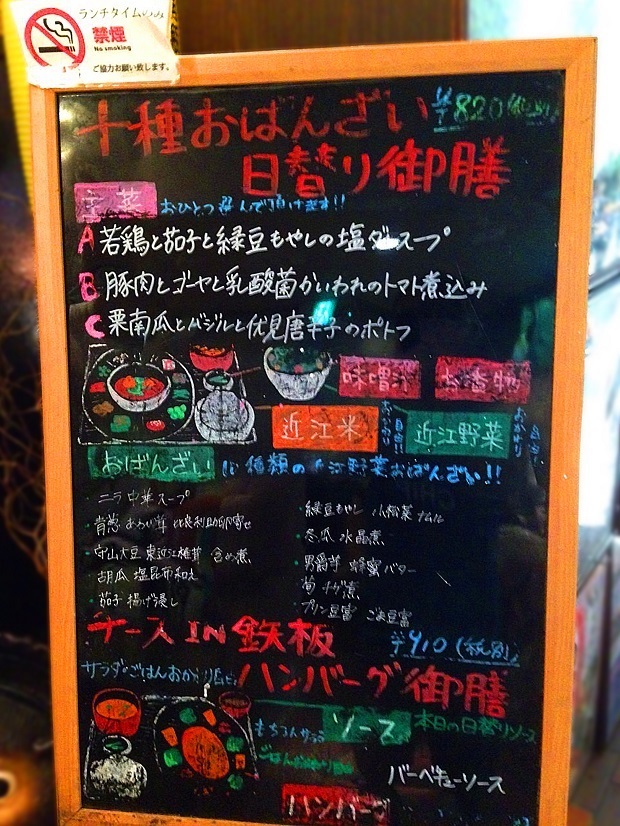 ランチタイムのみ
禁煙
No smoking
ご協力お願い致します。
十種おばんざい ¥820(税別)
日替り御膳
主菜 おひとつ選んで頂けます!!
A 若鶏と茄子と緑豆もやしの塩ダースープ
B 豚肉とゴーヤと乳酸菌かいわれのトマト煮込み
C 栗南瓜とバジルと伏見唐辛子のポトフ
味噌汁 お香物
近江米 近江野菜
おかわり自由!! おかわり自由!!
おばんざい 10種類の近江野菜おばんざい!!
・ニラ 中華スープ
・青葱 あわい茸 比良利助卵寄せ
・守山大豆 東近江椎茸 含め煮
・胡瓜 塩昆布和え
・茄子 揚げ浸し
・緑豆もやし 小松菜 ナムル
・冬瓜 水晶煮
・男爵芋 蜂蜜バター
・筍 チゲ煮
・プリン豆富 ごま豆富
チーズIN鉄板 ¥910(税別)
サラダ・ごはんおかわり自由!
ハンバーグ御膳
ソース 本日の日替りソース
もちろんサラダ
ごはんおかわり自由
バーベキューソース
ハンバーグ